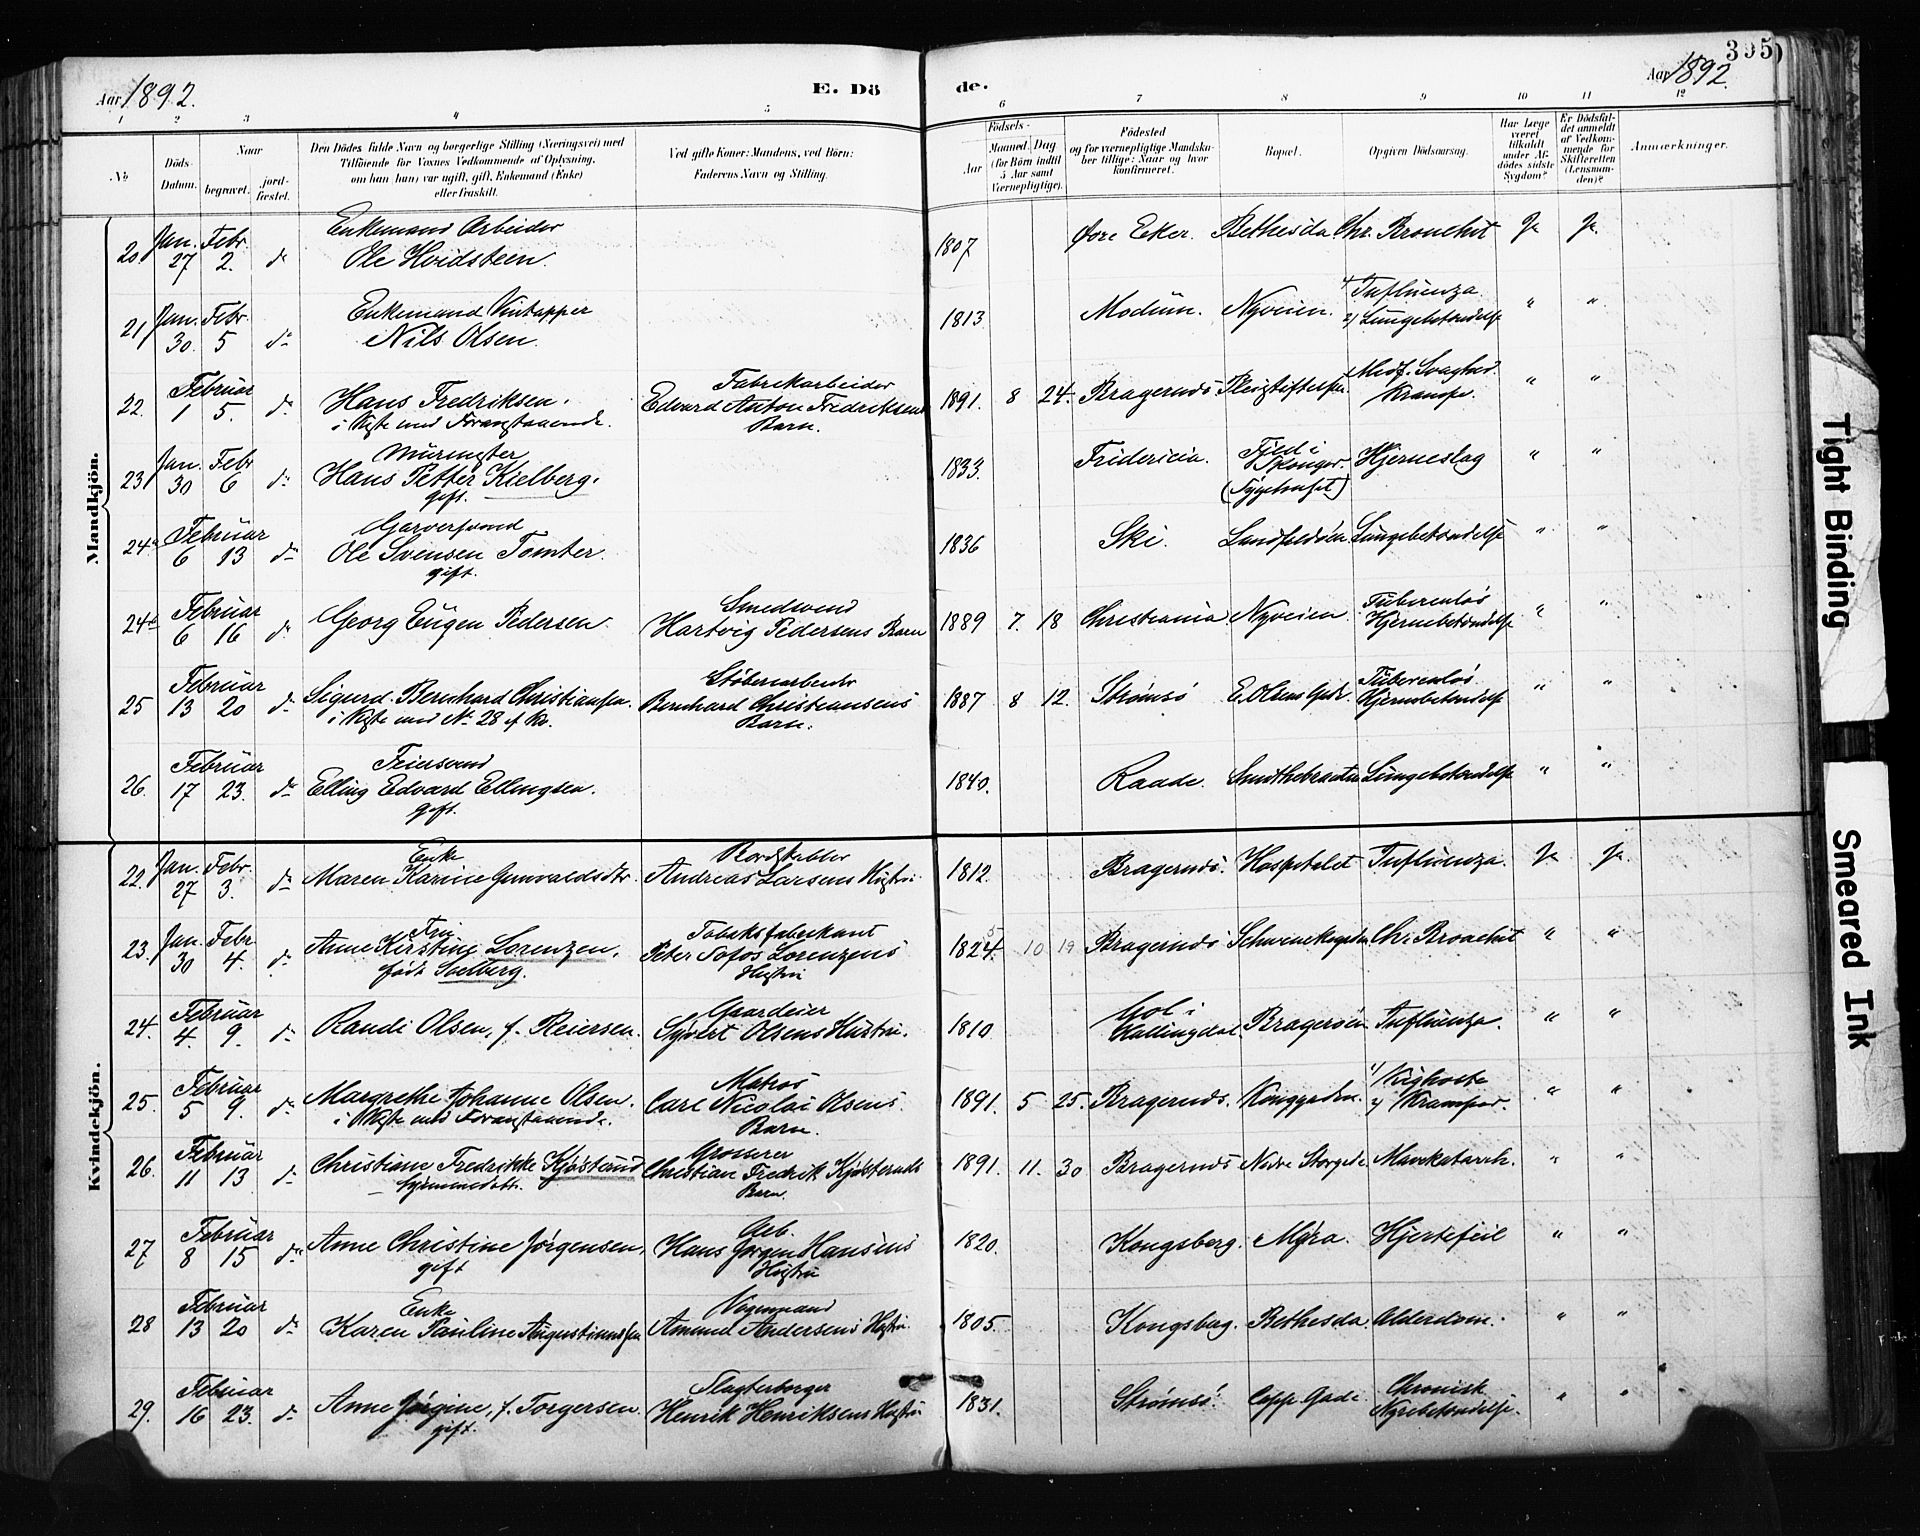 395
Aar 1892.
E. Dö
de.
Aar 1892
1
2
3
4
5
6
7
8
9
10
11
12
No
Döds-
Datum.
Naar
begravet.
jord-
fæstet.
Den Dödes fulde Navn og borgerlige Stilling (Næringsvei) med
Tilföiende for Voxnes Vedkommende af Oplysning,
om han (hun) var ugift, gift, Enkemand (Enke)
eller fraskilt.
Ved gifte Koner: Mandens, ved Börn:
Faderens Navn og Stilling.
Födsels-
Aar
Maaned
Dag
(for Börn indtil
5 Aar samt
Værnepligtige).
Födested
og for værnepligtige Mandska-
ber tillige: Naar og hvor
konfirmeret.
Bopæl.
Opgiven Dödsaarsag.
Har Læge
været
tilkaldt
under Af-
dödes sidste
Sygdom?
Er Dödsfal-
det anmeldt
af Vedkom-
mende for
Skifteretten
(Lensman-
den)?
Anmærkninger.
Mandkjön.
20. Jan. 27 Febr. 2. do Enkemand Arbeider
Ole Hvidsteen. 1807 Øvre Eker. Bethesda Chr. Bronchit Ja Ja.
21 Jan. 30. Febr. 5 do Enkemand Vintapper
Nils Olsen. 1813 Modum. Nyveien. 1) Influenza.
2) Lungebetændelse " "
22. Februar 1 5. do Hans Fredriksen.
i Kiste med Foranstaaende. Fabrikarbeider
Edvard Anton Fredriksens
Barn. 1891. 8 24. Bragernæs Medf. Svaghed
Krampe. " "
23 Jan. 30 Febr 6 do Murmester
Hans Petter Kielberg.
gift. 1833. Fridericia. (Sygehuset) Hjerneslag " "
24a Februar 6 13 do Garversvend
Ole Svensen Tomter.
gift. 1836 Ski. Landfaldøen Lungebetændelse " "
24b Februar 6 16 do Georg Eugen Pedersen. Smedsvend
Hartvig Pedersens Barn 1889 7. 18 Christiania Nyveien. Tuberculøs
Hjernebetændelse " "
25 Februar 13 20 do Sigurd Bernhard Christiansen.
i Kiste med No 28 af Kv. Støberiarbeider
Bernhard Christiansens
Barn. 1887 8 12. Strømsø E. Olsens Gade. Tuberculøs
Hjernebetændelse " "
26. Februar 17 23. do Feiersvend
Elling Edvard Ellingsen.
gift. 1840. Raade. Smithebraaten Lungebetændelse " "
Kvindekjön.
22. Jan. 27 Febr. 3. do Enke
Maren Karine Gunvaldsdtr. Bordstabler
Andreas Larsens Hustru 1812. Bragernæs. Hospitalet Influenza. Ja Ja.
23. Jan. 30 Febr. 4. do Fru
Anne Kirstine Lorenzen.
født Soelberg. Tobaksfabrikant
Peter Tofos Lorenzens
Hustru 1824. 5 10 19 Bragernæs Chr. Bronchit " "
24. Februar 4. 9. do Randi Olsen, f. Reiersen. Gaardeier
Syvert Olsens Hustru. 1810 Gol i
Hallingdal. Bragerøen Influenza. " "
25. Februar 5 9. do Margrethe Johanne Olsen.
i Kiste med Foranstaaende. Matros
Carl Nicolai Olsens.
Barn. 1891. 5 25. Bragernæs. Konggaden. 1) Kighoste
2) Kramper. " "
26. Februar 11 13 do Christiane Fredrikke Kjøsterud
hjemmedøbt. Grosserer
Christian Fredrik Kjøsteruds
Barn. 1891. 11. 30 Bragernæs Nedre Storgade. Mavekatarrh. " "
27 Februar 8 15 do Anne Christine Jørgensen.
gift Arb.
Hans Jørgen Hansens
Hustru 1820. Kongsberg. Myra. Hjertefeil " "
28 Februar 13 20 do Enke
Karen Pauline Augustinussen Vognmand
Amund Andersens Hustru. 1805. Kongsberg. Bethesda. Alderdom. " "
29. Februar 16 23. do Anne Jørgine, f. Torgersen.
gift. Slagterborger
Henrik Henriksens Hustru 1831. Strømsø. Capp. Gade. Chronisk
Nyrebetændelse. " "
Tight Binding
Smeared Ink